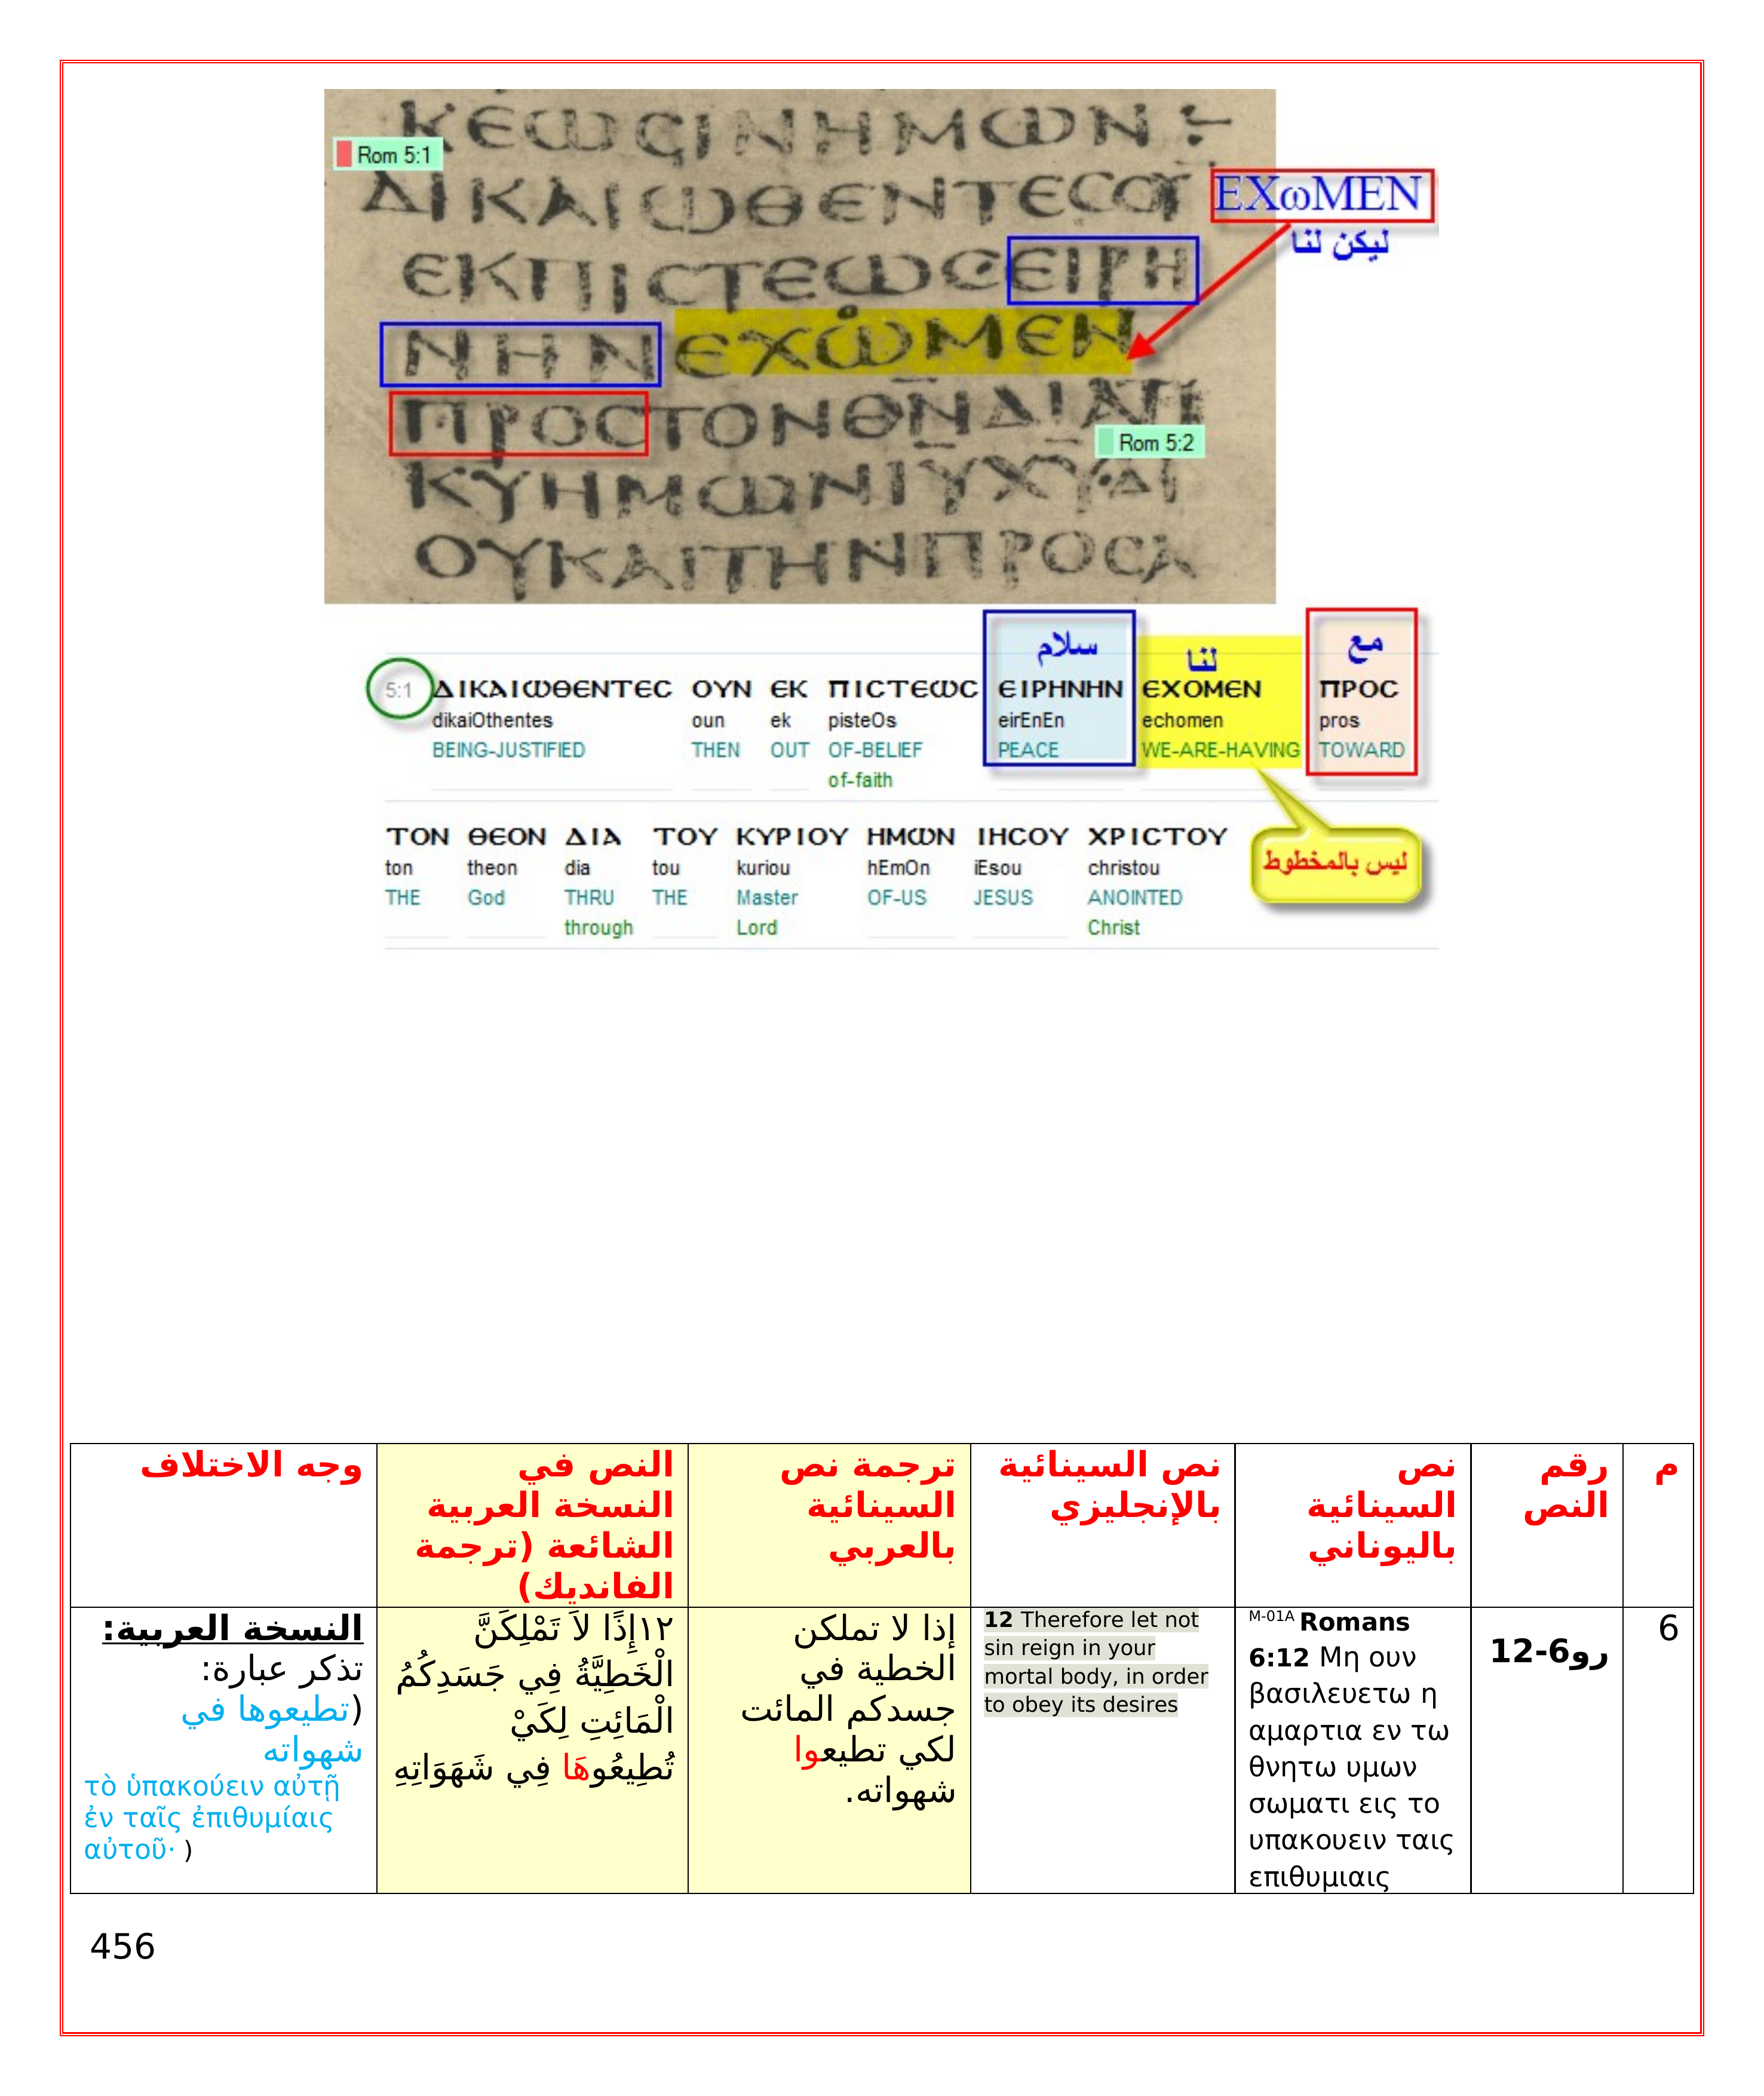 ΚΕΩCΙΝΗΜΩΝ :-
Rom 5:1
ΔΙΚΑΙΩΘΕΝΤΕCΟΥ
EXωMEN
ليكن لنا
ΕΚΠΙCΤΕΩCΕΙΡΗ
ΝΗΝΕΧΩΜΕΝ
ΠΡΟCΤΟΝΘΝΔΙΑΤ
Rom 5:2
ΚΥΗΜΩΝΙΥΧΥΔΙ
ΟΥΚΑΙΤΗΝΠΡΟCΑ
سلام لنا مع
5:1 ΔΙΚΑΙΩΘΕΝΤΕC ΟΥΝ ΕΚ ΠΙCΤΕΩC ΕΙΡΗΝΗΝ ΕΧΟΜΕΝ ΠΡΟC
dikaiOthentes oun ek pisteOs eirEnEn echomen pros
BEING-JUSTIFIED THEN OUT OF-BELIEF PEACE WE-ARE-HAVING TOWARD
of-faith
ΤΟΝ ΘΕΟΝ ΔΙΑ ΤΟΥ ΚΥΡΙΟΥ ΗΜΩΝ ΙΗCΟΥ ΧΡΙCΤΟΥ
ton theon dia tou kuriou hEmOn iEsou christou
THE God THRU THE Master OF-US JESUS ANOINTED
through Lord Christ
ليس بالمخطوط
م
رقم
النص
نص
السينائية
باليوناني
نص السينائية
بالإنجليزي
ترجمة نص
السينائية
بالعربي
النص في
النسخة العربية
الشائعة (ترجمة
الفانديك)
وجه الاختلاف
6
رو6-12
M-01A Romans
6:12 Μη ουν
βασιλευετω η
αμαρτια εν τω
θνητω υμων
σωματι εις το
υπακουειν ταις
επιθυμιαις
12 Therefore let not
sin reign in your
mortal body, in order
to obey its desires
إذا لا تملكن
الخطية في
جسدكم المائت
لكي تطيعوا
شهواته.
١٢إِذًا لاَ تَمْلِكَنَّ
الْخَطِيَّةُ فِي جَسَدِكُمُ
الْمَائِتِ لِكَيْ
تُطِيعُوهَا فِي شَهَوَاتِهِ
النسخة العربية:
تذكر عبارة:
(تطيعوها في
شهواته
τὸ ὑπακούειν αὐτῇ
ἐν ταῖς ἐπιθυμίαις
αὐτοῦ· )
456